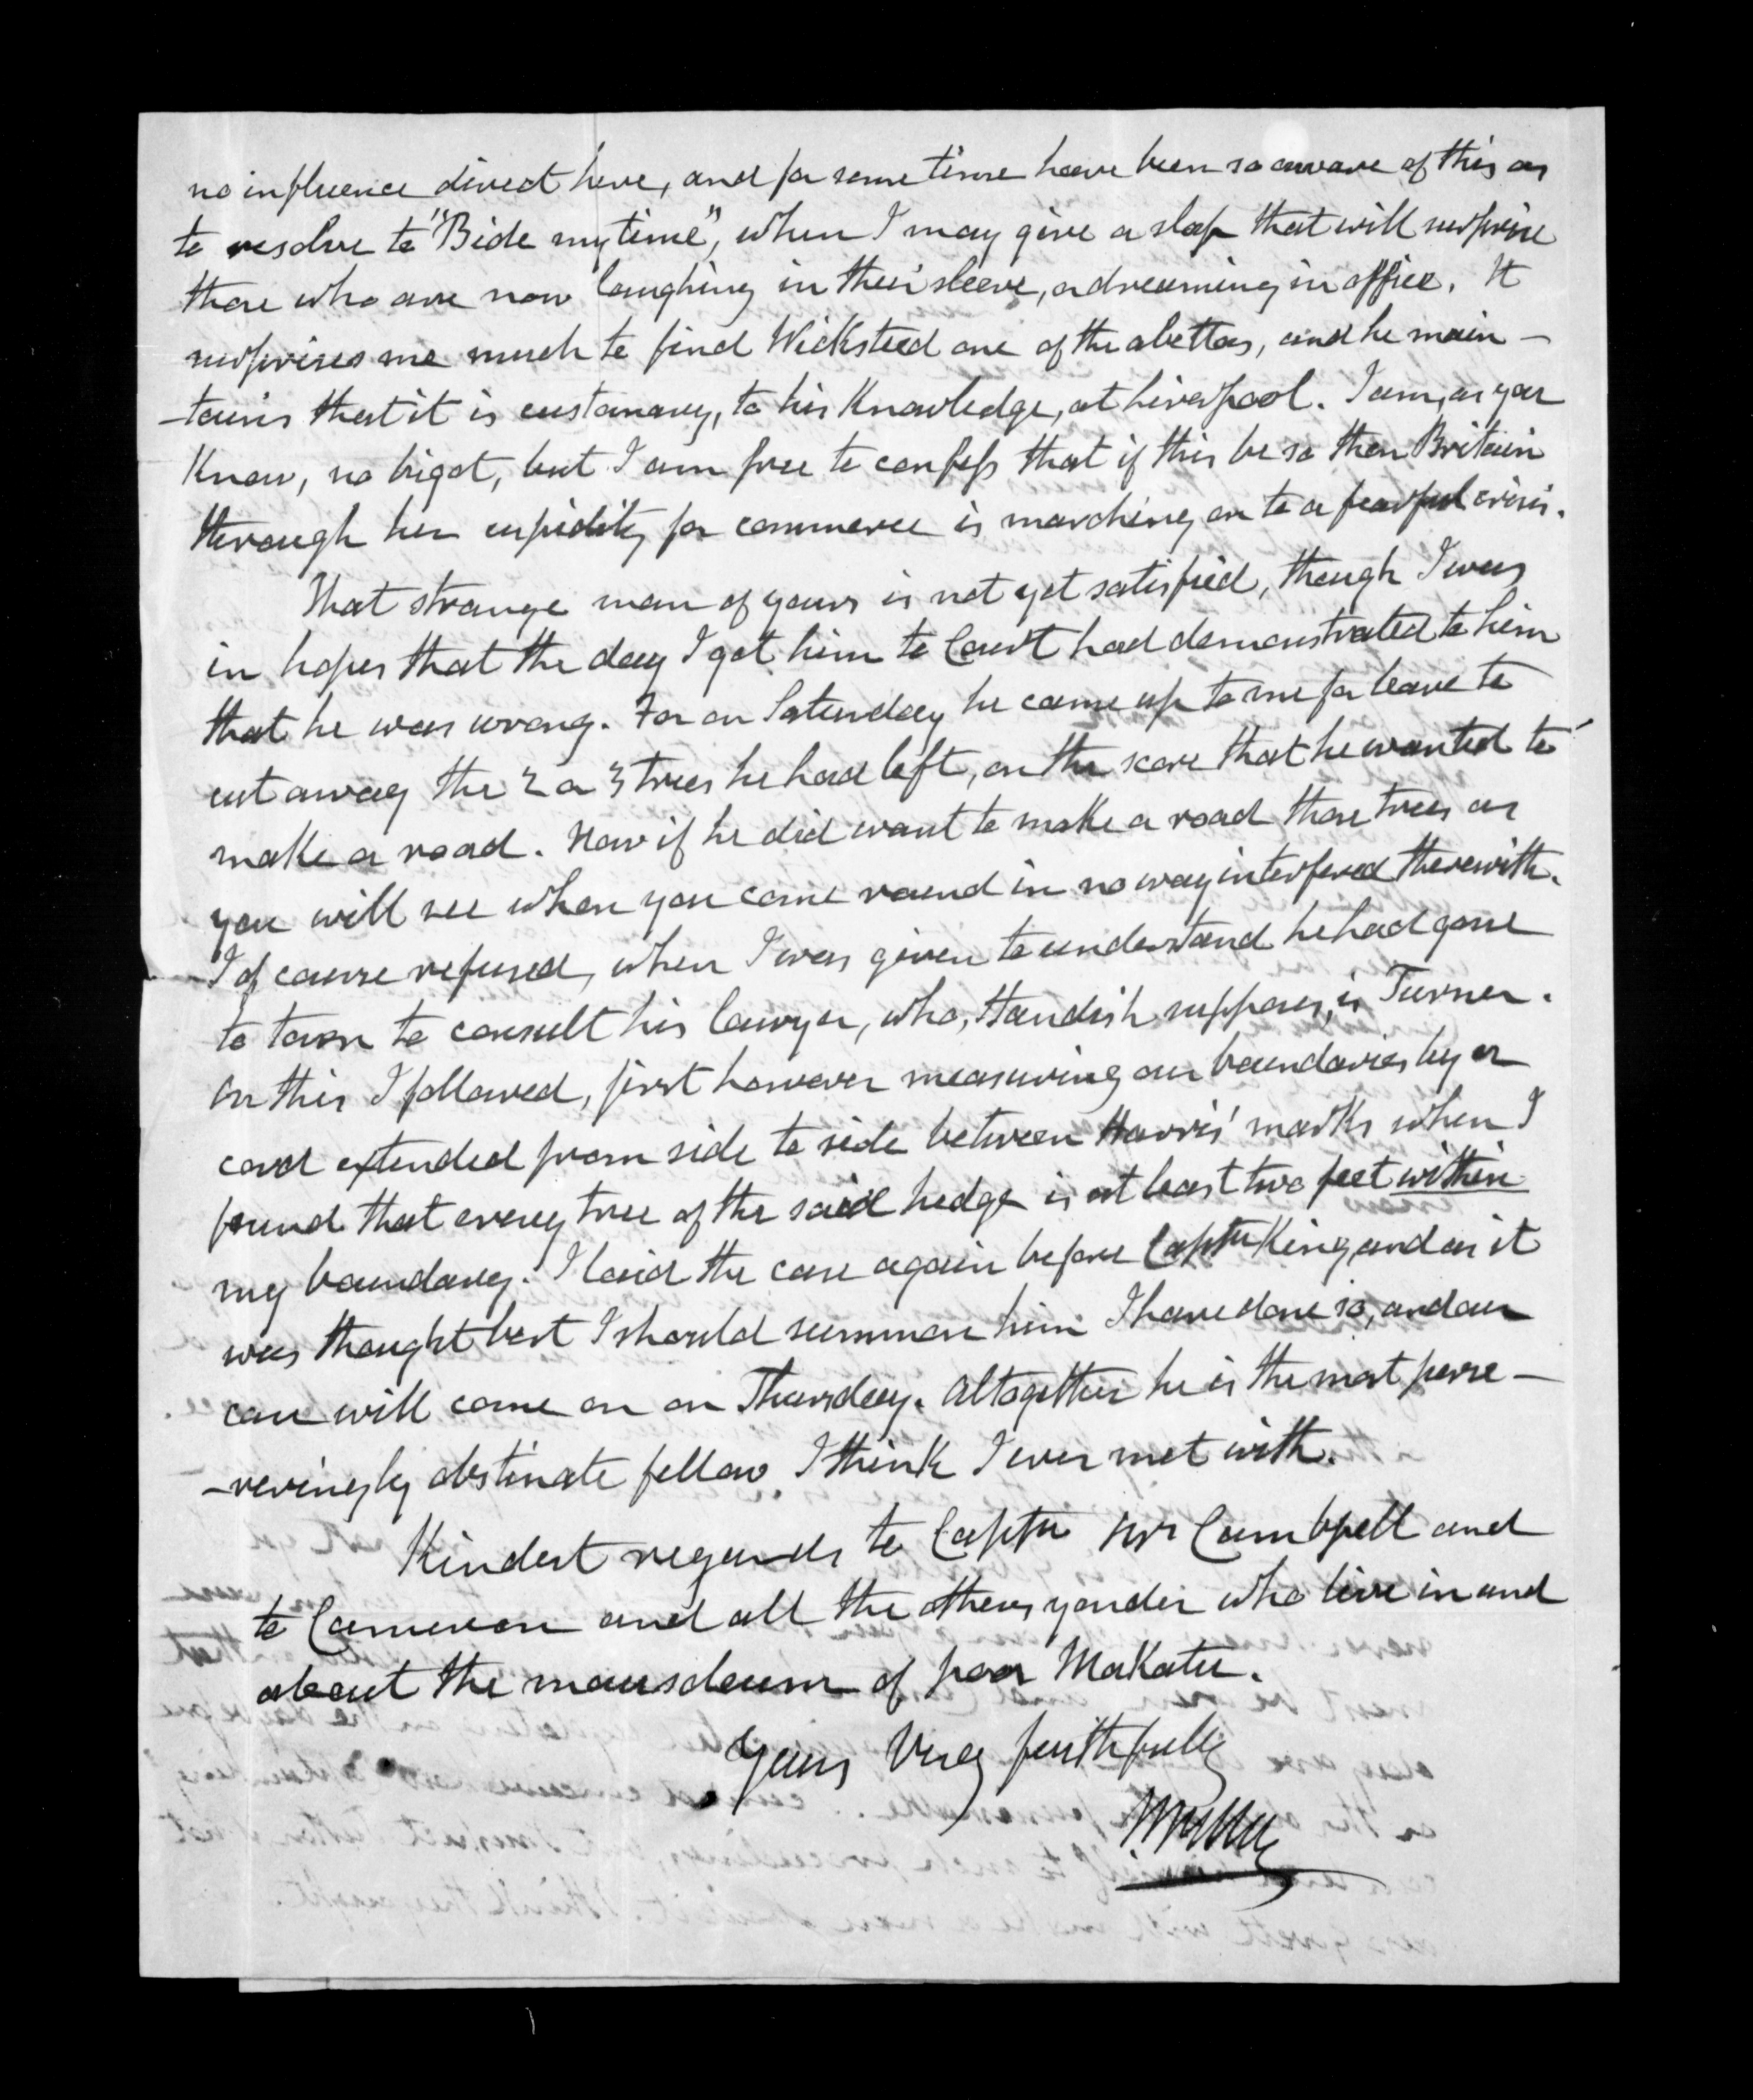 no influence direct here, and for some time have been so aware of this as
to resolve to "Bide my time", when I may give a slap that will surprise
those who are now laughing in their sleeve, or dreaming in office. It
surprises me much to find Wicksteed one of the abettors, and he main-
-tains that it is customary, to his Knowledge, at Liverpool. I am, as you
Know, no bigot, but I am free to confess that if this be so then Britain
through her cupidity for commerce is marching on to a fearful crisis.
That strange man of yours is not yet satisfied, though I was
in hopes that the day I got him to Court had demonstrated to him
that he was wrong. For on Saturday he came up to me for leave to
cut away the 2 or 3 trees he had left, on the score that he wanted to
make a road. Now if he did want to make a road those trees as
you will see when you come round in no way interfered therewith.
I of course refused, when I was given to understand he had gone
to town to consult his lawyer, who, Standish supposes, is Turner.
On this I followed, first however measuring our boundaries by a
cord extended from side to side between Harris' marks when I
found that every tree of the said hedge is at least two feet within
my boundary. I laid the case again before Captn King and as it
was thought best I should summon him I have done so, and our
case will come on on Thursday. Altogether he is the most perse-
-veringly obstinate fellow I think I ever met with.
Kindest regards to Captn Mrs Campbell and
to Cameron and all the others yonder who live in and
about the mausoleum of poor Makatu.
Yours Very faithfully